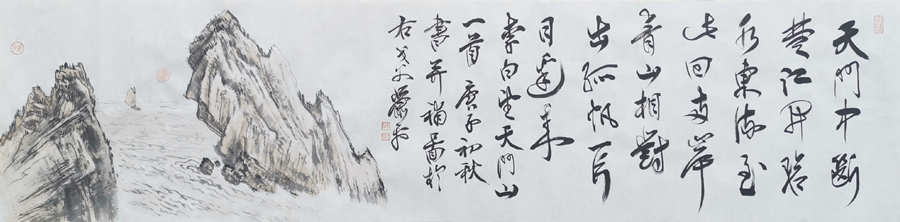 天門中斷
楚江開碧
水東流至
此回兩岸
青山相對
出孤帆一片
日邊來
李白望天門山
一首 庚子初秋
書并補圖於